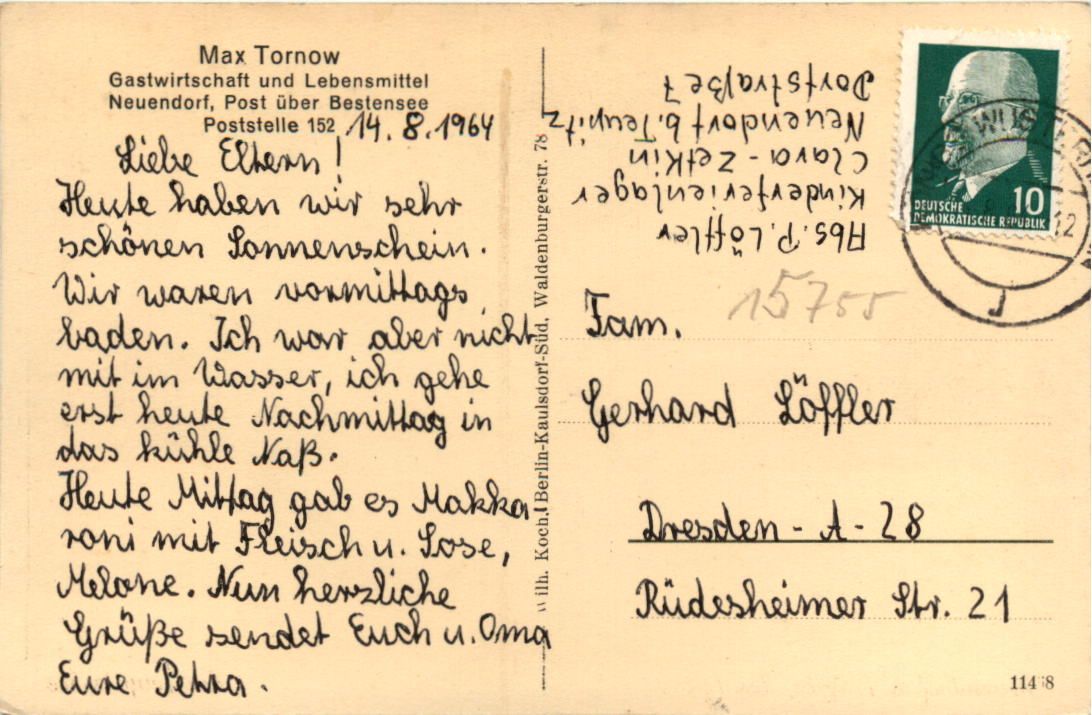 Max Tornow
Gastwirtschaft und Lebensmittel
Neuendorf, Post über Bestensee
Poststelle 152
14.8.1964
Liebe Eltern!
Heute haben wir sehr
schönen Sonnenschein.
Wir waren vormittags
baden. Ich war aber nicht
mit im Wasser, ich gehe
erst heute Nachmittag in
das kühle Naß.
Heute Mittag gab es Makka
roni mit Fleisch u. Sose,
Melone. Nun herzliche
Grüße sendet Euch u. Oma
Eure Petra.
ilh. Koch, Berlin-Kaulsdorf-Süd, Waldenburgerstr. 78
Abs. P. Löffler
Kinderferienlager
Clara-Zetkin
Neuendorf b. Teupitz
Dorfstraße 7
10
DEUTSCHE
DEMOKRATISCHE REPUBLIK
WUSTER
12
15755
Fam.
Gerhard Löffler
Dresden-A-28
Rüdesheimer Str. 21